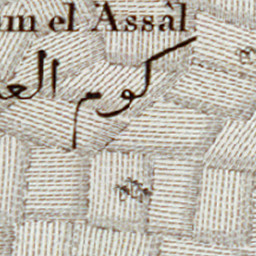 m el Assâl
كوم الع